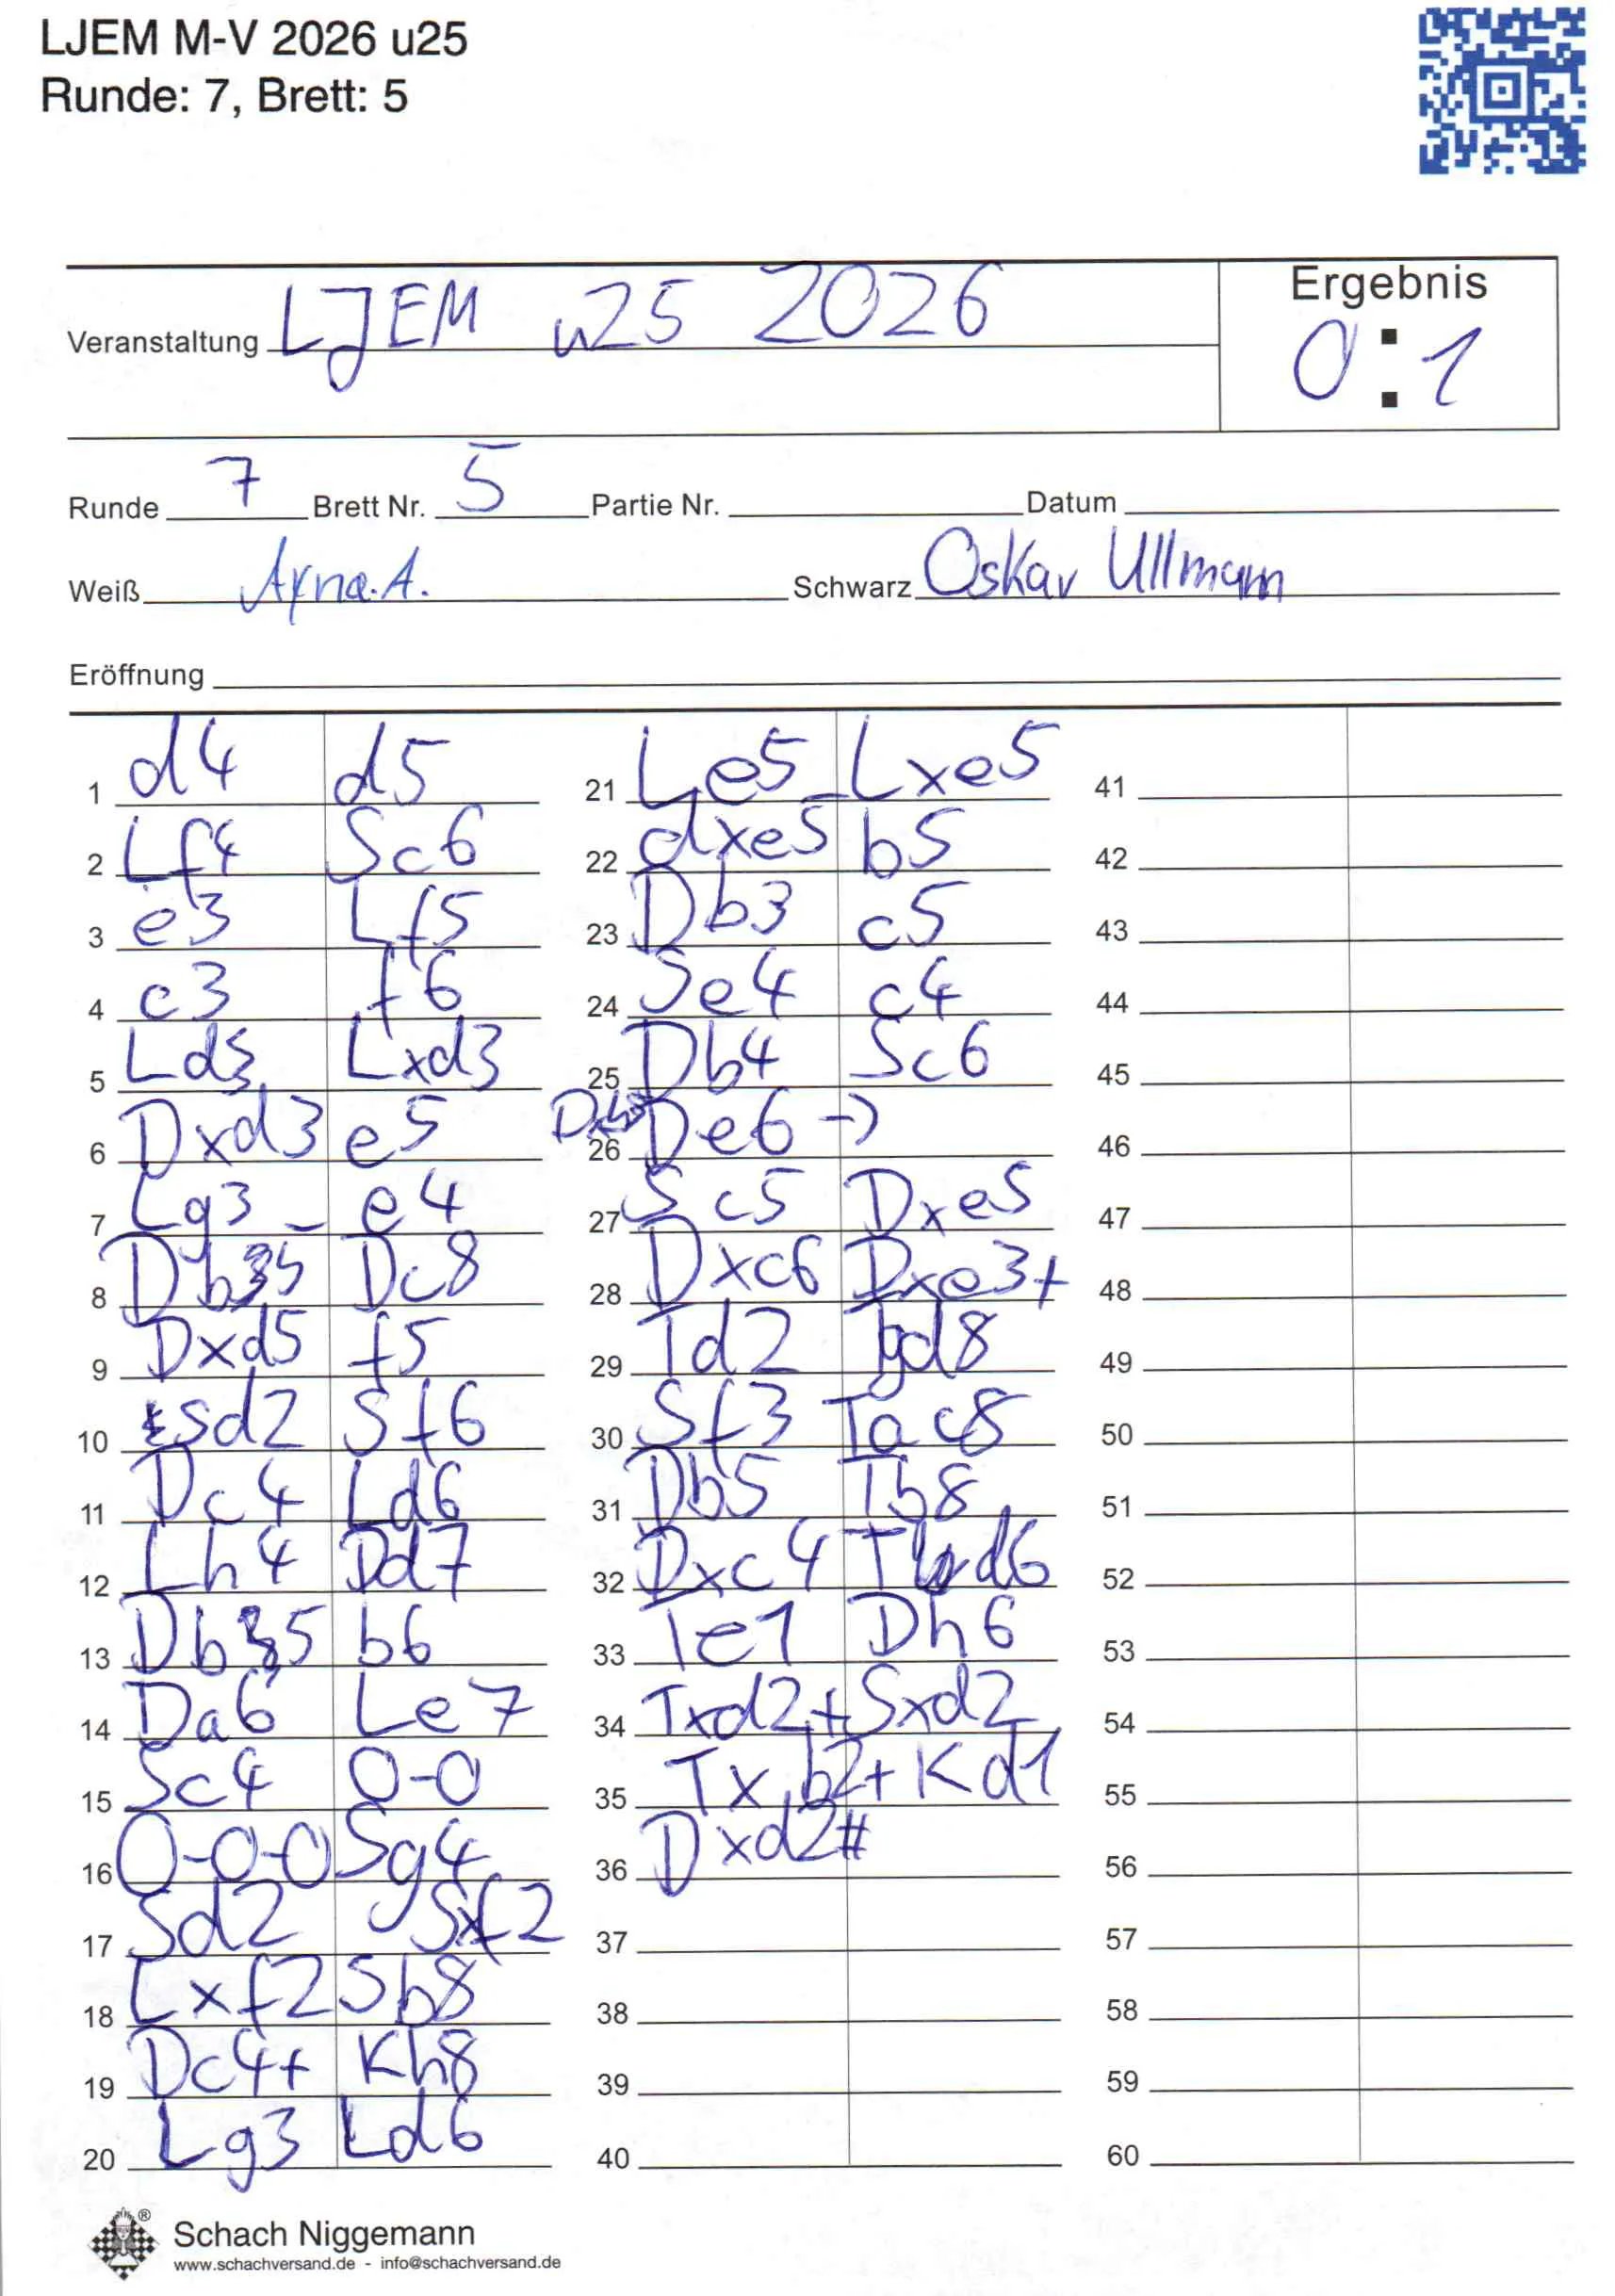 LJEM M-V 2026 u25
Runde: 7, Brett: 5
Ergebnis
Veranstaltung LJEM u25 2026
0:1
Runde 7 Brett Nr. 5 Partie Nr. Datum
Weiß A. Schwarz Oskar Ullmann
Eröffnung
1 d4 d5 21 Le5 Lxe5 41
2 Lf4 Sc6 22 dxe5 b5 42
3 e3 Lf5 23 Db3 c5 43
4 c3 f6 24 Se4 c4 44
5 Ld3 Lxd3 25 Db4 Sc6 45
6 Dxd3 e5 26 De6 -> 46
7 Lg3 e4 27 Sc5 Dxe5 47
8 Db5 Dc8 28 Dxc6 Dxe3+ 48
9 Dxd5 f5 29 Td2 Tgd8 49
10 Sd2 Sf6 30 Sf3 Tac8 50
11 Dc4 Ld6 31 Db5 Tb8 51
12 Lh4 Dd7 32 Dxc4 Tbd6 52
13 Db5 b6 33 Te1 Dh6 53
14 Da6 Le7 34 Txd2+ Sxd2 54
15 Sc4 0-0 35 Txb2+ Kd1 55
16 0-0-0 Sg4 36 Dxd2# 56
17 Sd2 Sxf2 37 57
18 Lxf2 Sb8 38 58
19 Dc4+ Kh8 39 59
20 Lg3 Ld6 40 60
® Schach Niggemann
www.schachversand.de - info@schachversand.de